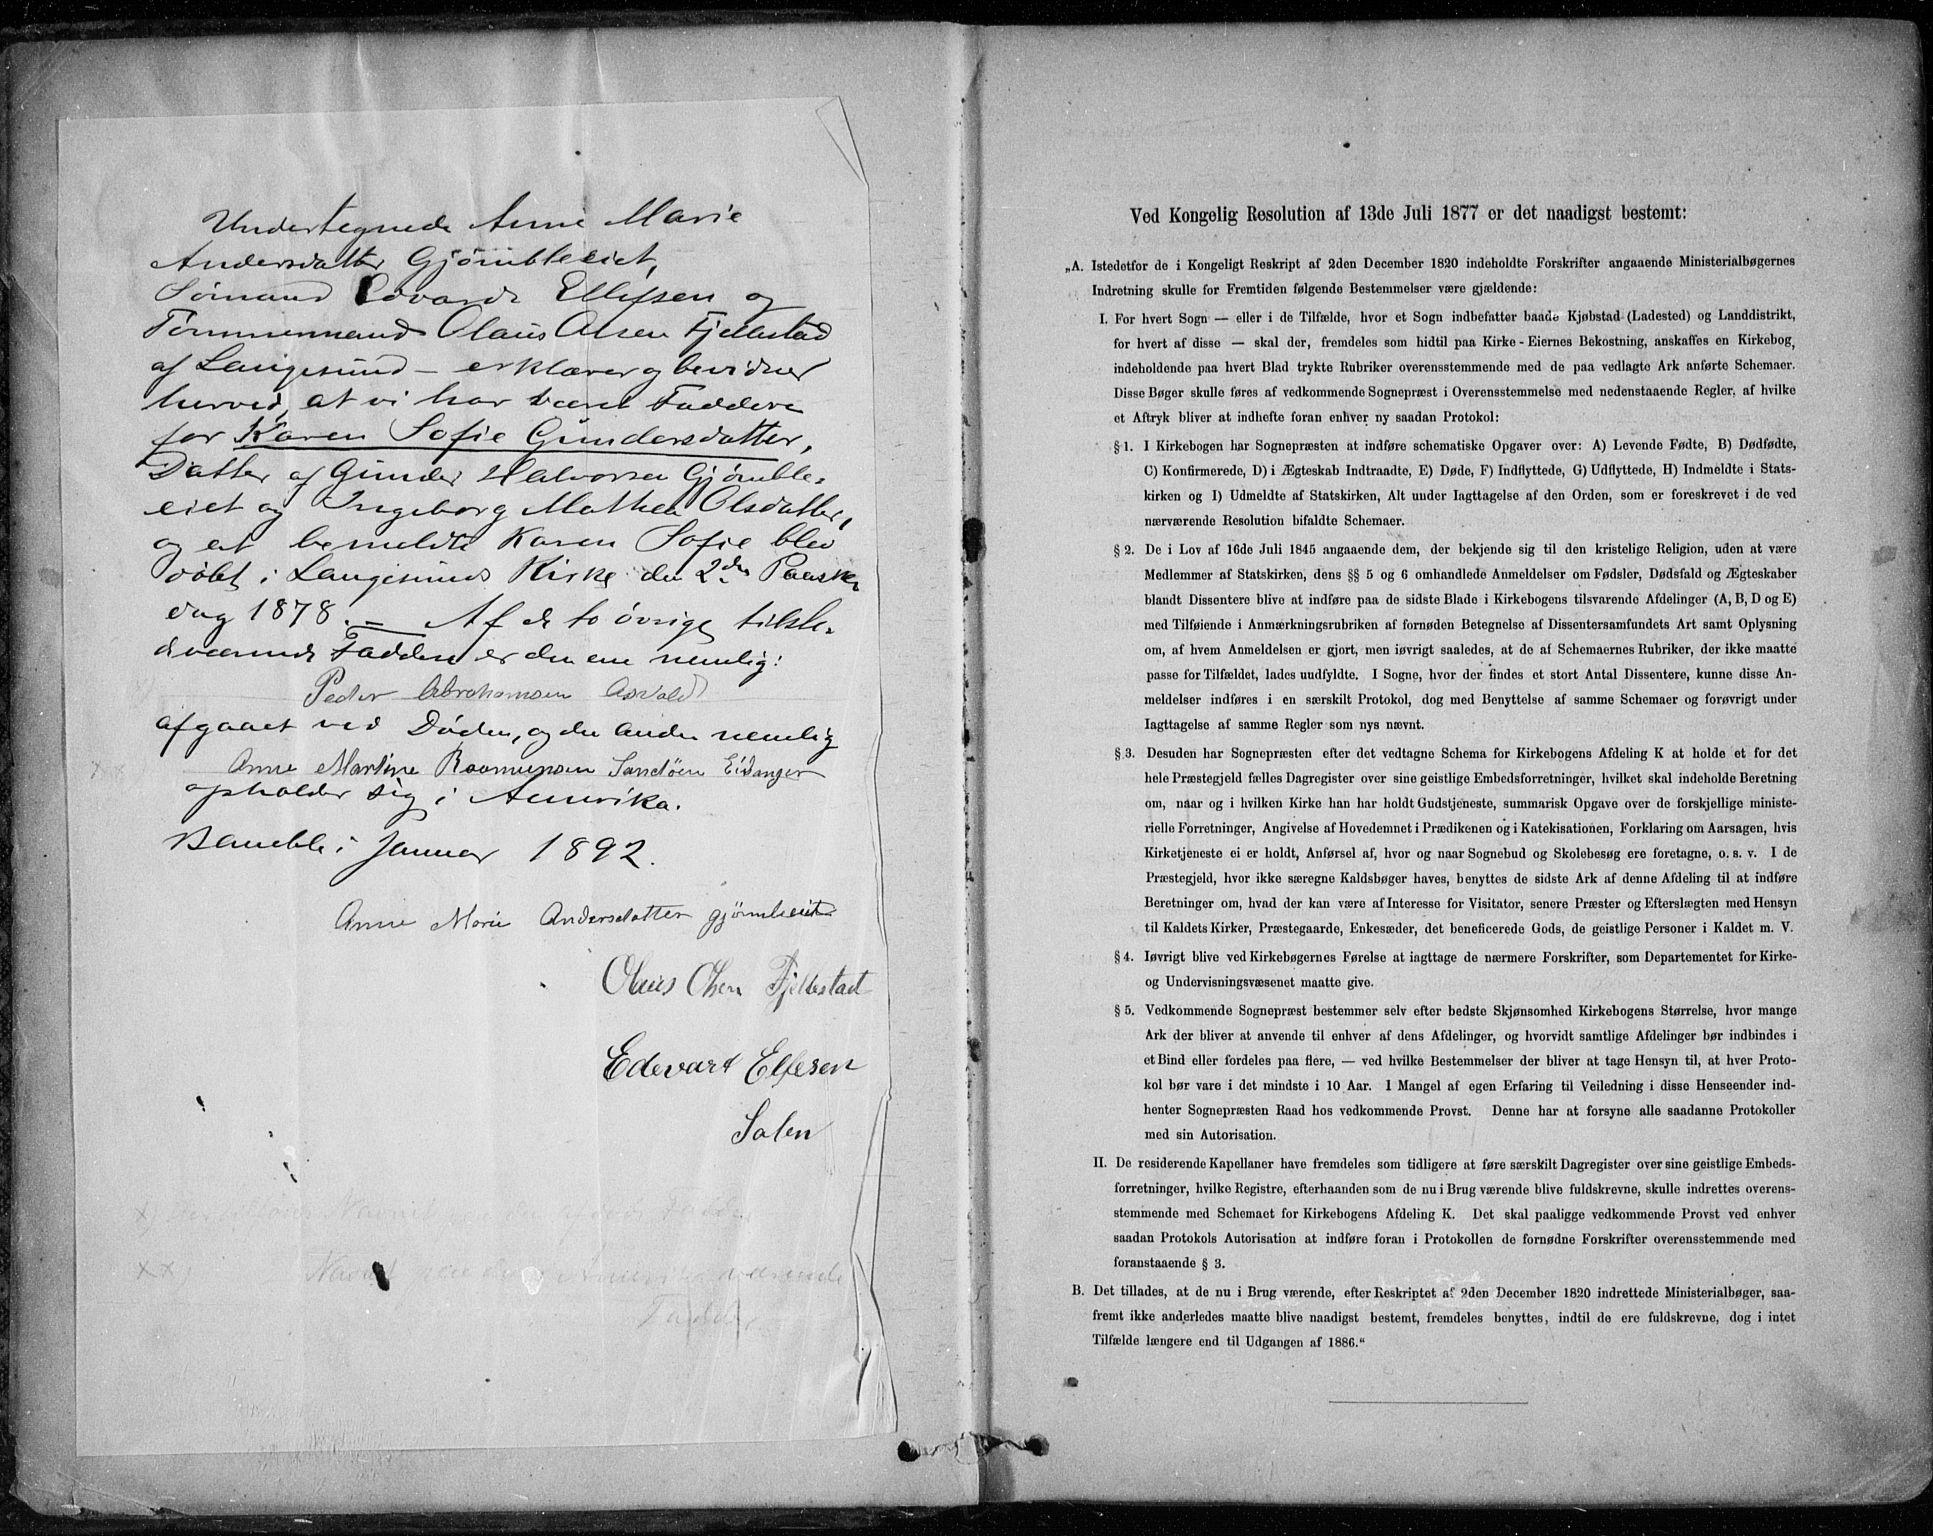 Undertegnede Anne Marie
Andersdatter Gjømbleeiet,
Sømand Edvard Ellefsen og
Tømmermand Olaus Olsen Fjellestad
af Langesund – erklærer og bevidner
herved, at vi har været Faddere
for Karen Sofie Gundersdatter,
Datter af Gunder Halvorsen Gjømble-
eiet og Ingeborg Mathea Olsdatter,
og at bemeldte Karen Sofie blev
døbt i Langesunds Kirke den 2den Paaske
dag 1878. – Af de to øvrige tilste-
deværende Faddere er den ene nemlig:
Peder Abrahamsen Asvald
afgaaet ved Døden, og den anden nemlig
xx) Anne Martine Rasmussen Sandøen Eidanger
opholder sig i Amerika.
Bamble i Januar 1892.
Anne Marie Andersdatter Gjømbleeiet
Olaus Olsen Fjellestad
Edevart Elfesen
Salen
x) Navnet paa den Fadder
xx) Navnet paa den i Amerika værende
Fadder
Ved Kongelig Resolution af 13de Juli 1877 er det naadigst bestemt:
„A. Istedetfor de i Kongeligt Reskript af 2den December 1820 indeholdte Forskrifter angaaende Ministerialbøgernes
Indretning skulle for Fremtiden følgende Bestemmelser være gjældende:
I. For hvert Sogn — eller i de Tilfælde, hvor et Sogn indbefatter baade Kjøbstad (Ladested) og Landdistrikt,
for hvert af disse — skal der, fremdeles som hidtil paa Kirke-Eiernes Bekostning, anskaffes en Kirkebog,
indeholdende paa hvert Blad trykte Rubriker overensstemmende med de paa vedlagte Ark anførte Schemaer.
Disse Bøger skulle føres af vedkommende Sognepræst i Overensstemmelse med nedenstaaende Regler, af hvilke
et Aftryk bliver at indhefte foran enhver ny saadan Protokol:
§ 1. I Kirkebogen har Sognepræsten at indføre schematiske Opgaver over: A) Levende Fødte, B) Dødfødte,
C) Konfirmerede, D) i Ægteskab Indtraadte, E) Døde, F) Indflyttede, G) Udflyttede, H) Indmeldte i Stats-
kirken og I) Udmeldte af Statskirken, Alt under Iagttagelse af den Orden, som er foreskrevet i de ved
nærværende Resolution bifaldte Schemaer.
§ 2. De i Lov af 16de Juli 1845 angaaende dem, der bekjende sig til den kristelige Religion, uden at være
Medlemmer af Statskirken, dens §§ 5 og 6 omhandlede Anmeldelser om Fødsler, Dødsfald og Ægteskaber
blandt Dissentere blive at indføre paa de sidste Blade i Kirkebogens tilsvarende Afdelinger (A, B, D og E)
med Tilføiende i Anmærkningsrubriken af fornøden Betegnelse af Dissentersamfundets Art samt Oplysning
om, af hvem Anmeldelsen er gjort, men iøvrigt saaledes, at de af Schemaernes Rubriker, der ikke maatte
passe for Tilfældet, lades uudfyldte. I Sogne, hvor der findes et stort Antal Dissentere, kunne disse An-
meldelser indføres i en særskilt Protokol, dog med Benyttelse af samme Schemaer og forøvrigt under
Iagttagelse af samme Regler som nys nævnt.
§ 3. Desuden har Sognepræsten efter det vedtagne Schema for Kirkebogens Afdeling K at holde et for det
hele Præstegjeld fælles Dagregister over sine geistlige Embedsforretninger, hvilket skal indeholde Beretning
om, naar og i hvilken Kirke han har holdt Gudstjeneste, summarisk Opgave over de forskjellige ministe-
rielle Forretninger, Angivelse af Hovedemnet i Prædikenen og i Katekisationen, Forklaring om Aarsagen, hvis
Kirketjeneste ei er holdt, Anførsel af, hvor og naar Sognebud og Skolebesøg ere foretagne, o. s. v. I de
Præstegjeld, hvor ikke særegne Kaldsbøger haves, benyttes de sidste Ark af denne Afdeling til at indføre
Beretninger om, hvad der kan være af Interesse for Visitator, senere Præster og Efterslægten med Hensyn
til Kaldets Kirker, Præstegaarde, Enkesæder, det beneficerede Gods, de geistlige Personer i Kaldet m. V.
§ 4. Iøvrigt blive ved Kirkebøgernes Førelse at iagttage de nærmere Forskrifter, som Departementet for Kirke-
og Undervisningsvæsenet maatte give.
§ 5. Vedkommende Sognepræst bestemmer selv efter bedste Skjønsomhed Kirkebogens Størrelse, hvor mange
Ark der bliver at anvende til enhver af dens Afdelinger, og hvorvidt samtlige Afdelinger bør indbindes i
et Bind eller fordeles paa flere, — ved hvilke Bestemmelser der bliver at tage Hensyn til, at hver Proto-
kol bør vare i det mindste i 10 Aar. I Mangel af egen Erfaring til Veiledning i disse Henseender ind-
henter Sognepræsten Raad hos vedkommende Provst. Denne har at forsyne alle saadanne Protokoller
med sin Autorisation.
II. De residerende Kapellaner have fremdeles som tidligere at føre særskilt Dagregister over sine geistlige Embeds-
forretninger, hvilke Registre, efterhaanden som de nu i Brug værende blive fuldskrevne, skulle indrettes overens-
stemmende med Schemaet for Kirkebogens Afdeling K. Det skal paaligge vedkommende Provst ved enhver
saadan Protokols Autorisation at indføre foran i Protokollen de fornødne Forskrifter overensstemmende med
foranstaaende § 3.
B. Det tillades, at de nu i Brug værende, efter Reskriptet af 2den December 1820 indrettede Ministerialbøger, saa-
fremt ikke anderledes maatte blive naadigst bestemt, fremdeles benyttes, indtil de ere fuldskrevne, dog i intet
Tilfælde længere end til Udgangen af 1886.“